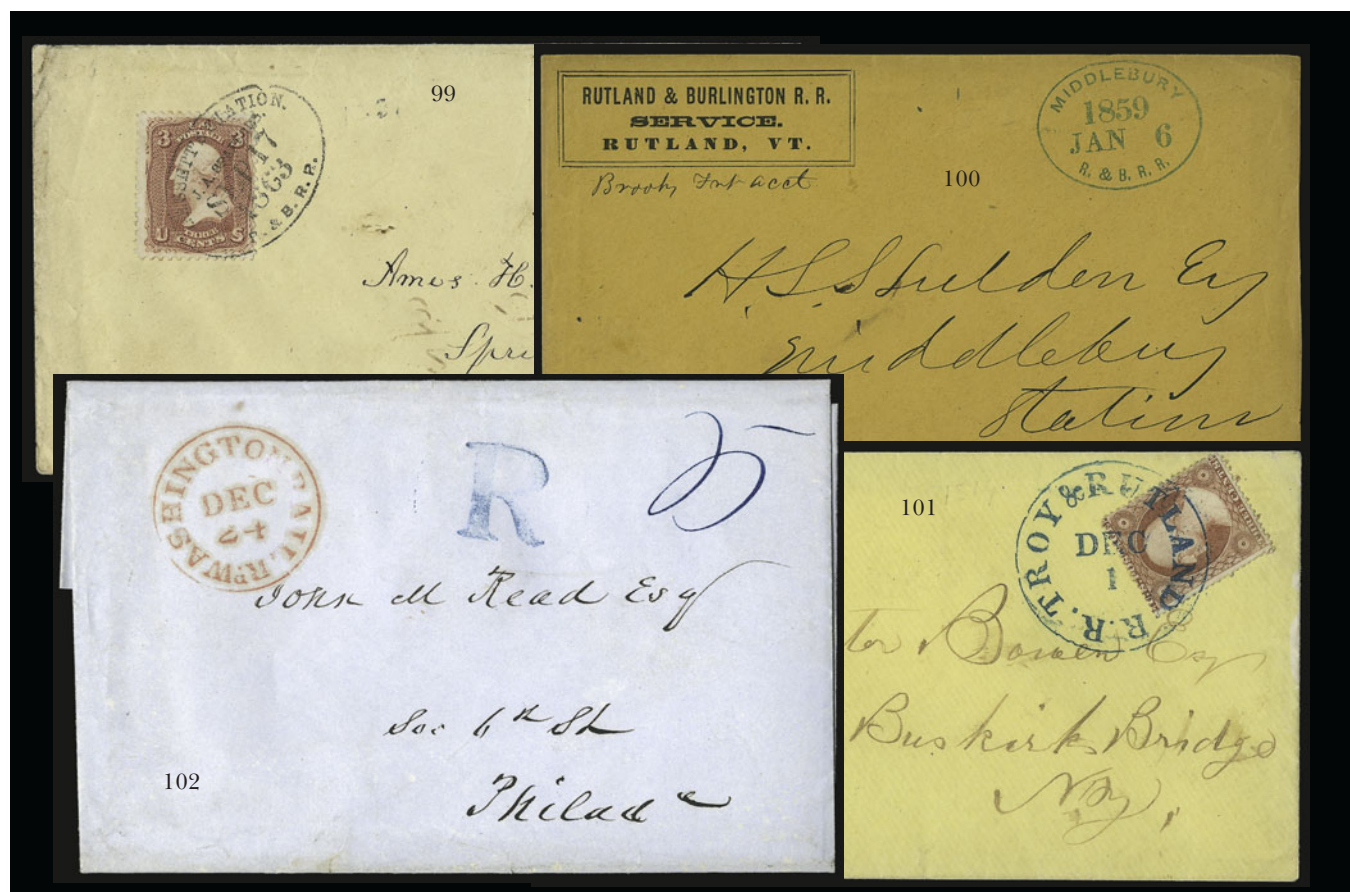 99
STATION.
17
1863
& B. R. R.
3 POSTAGE 3
U THREE CENTS S
Ames H.
Spri
RUTLAND & BURLINGTON R. R.
SERVICE.
RUTLAND, VT.
MIDDLEBURY
1859
JAN 6
R. & B. R. R.
100
H. S. Shelden Esq
Middlebury
Station
WASHINGTON RAIL Rᴅ
DEC
24
R
5
John M Read Esq
Soo 6th St
Philada
102
101
TROY & RUTLAND R.R.
DEC
1
Bowen Esq
Buskirks Bridge
N.Y.